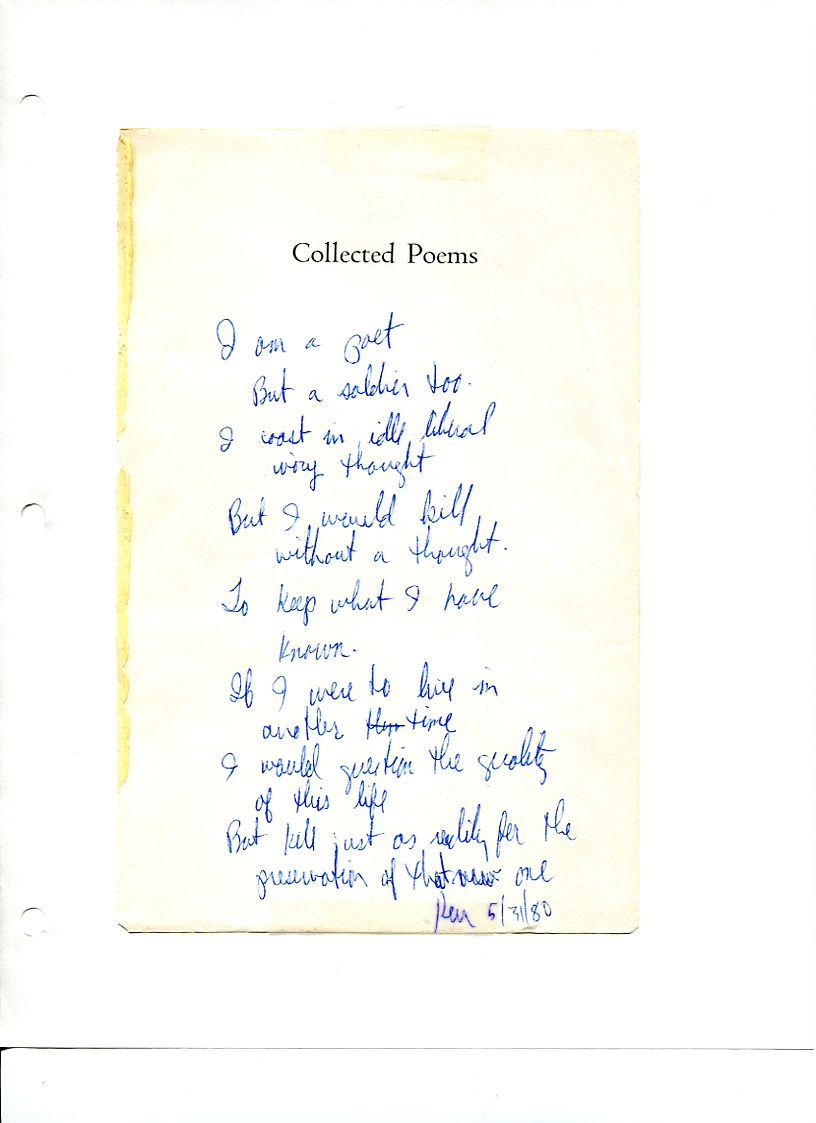 Collected Poems
I am a poet
But a soldier too.
I coast in idle liberal
wing thought
But I would kill
without a thought.
To keep what I have
known.
If I were to live in
another time
I would question the quality
of this life
But kill just as for the
preservation of that one
5/31/80